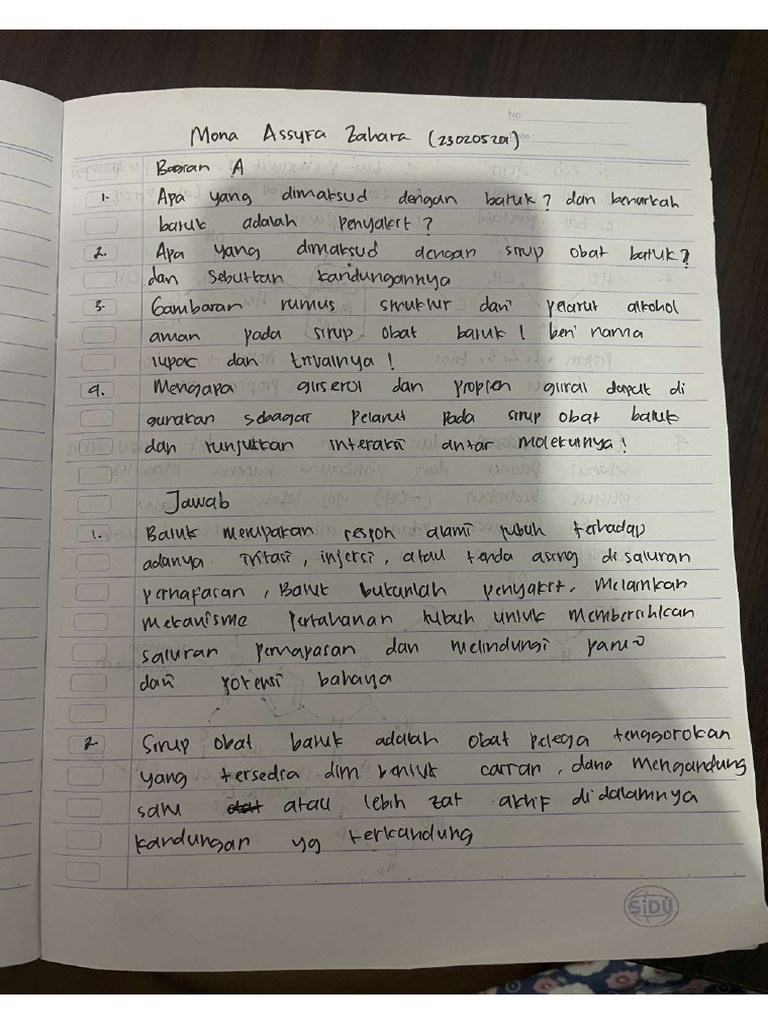 No.
Date:
Mona Assyfa Zahara (230205201)
Bagian A
1. Apa yang dimaksud dengan batuk? dan benarkah
batuk adalah penyakit?
2. Apa yang dimaksud dengan sirup obat batuk?
dan sebutkan kandungannya
3. Gambaran rumus struktur dari pelarut alkohol
aman pada sirup obat batuk! beri nama
iupac dan trivalnya!
4. Mengapa gliserol dan propilen glikol dapat di
gunakan sebagai pelarut pada sirup obat batuk
dan tunjukkan interaksi antar molekulnya!
Jawab
1. Batuk merupakan respon alami tubuh terhadap
adanya iritasi, injeksi, atau benda asing di saluran
pernafasan, Batuk bukanlah penyakit, melainkan
mekanisme pertahanan tubuh untuk membersihkan
saluran pernapasan dan melindungi paru2
dari potensi bahaya
2. Sirup obat batuk adalah obat pelega tenggorokan
yang tersedia dlm bentuk cairan, dana mengandung
satu atau lebih zat aktif didalamnya
kandungan yg terkandung
SiDU